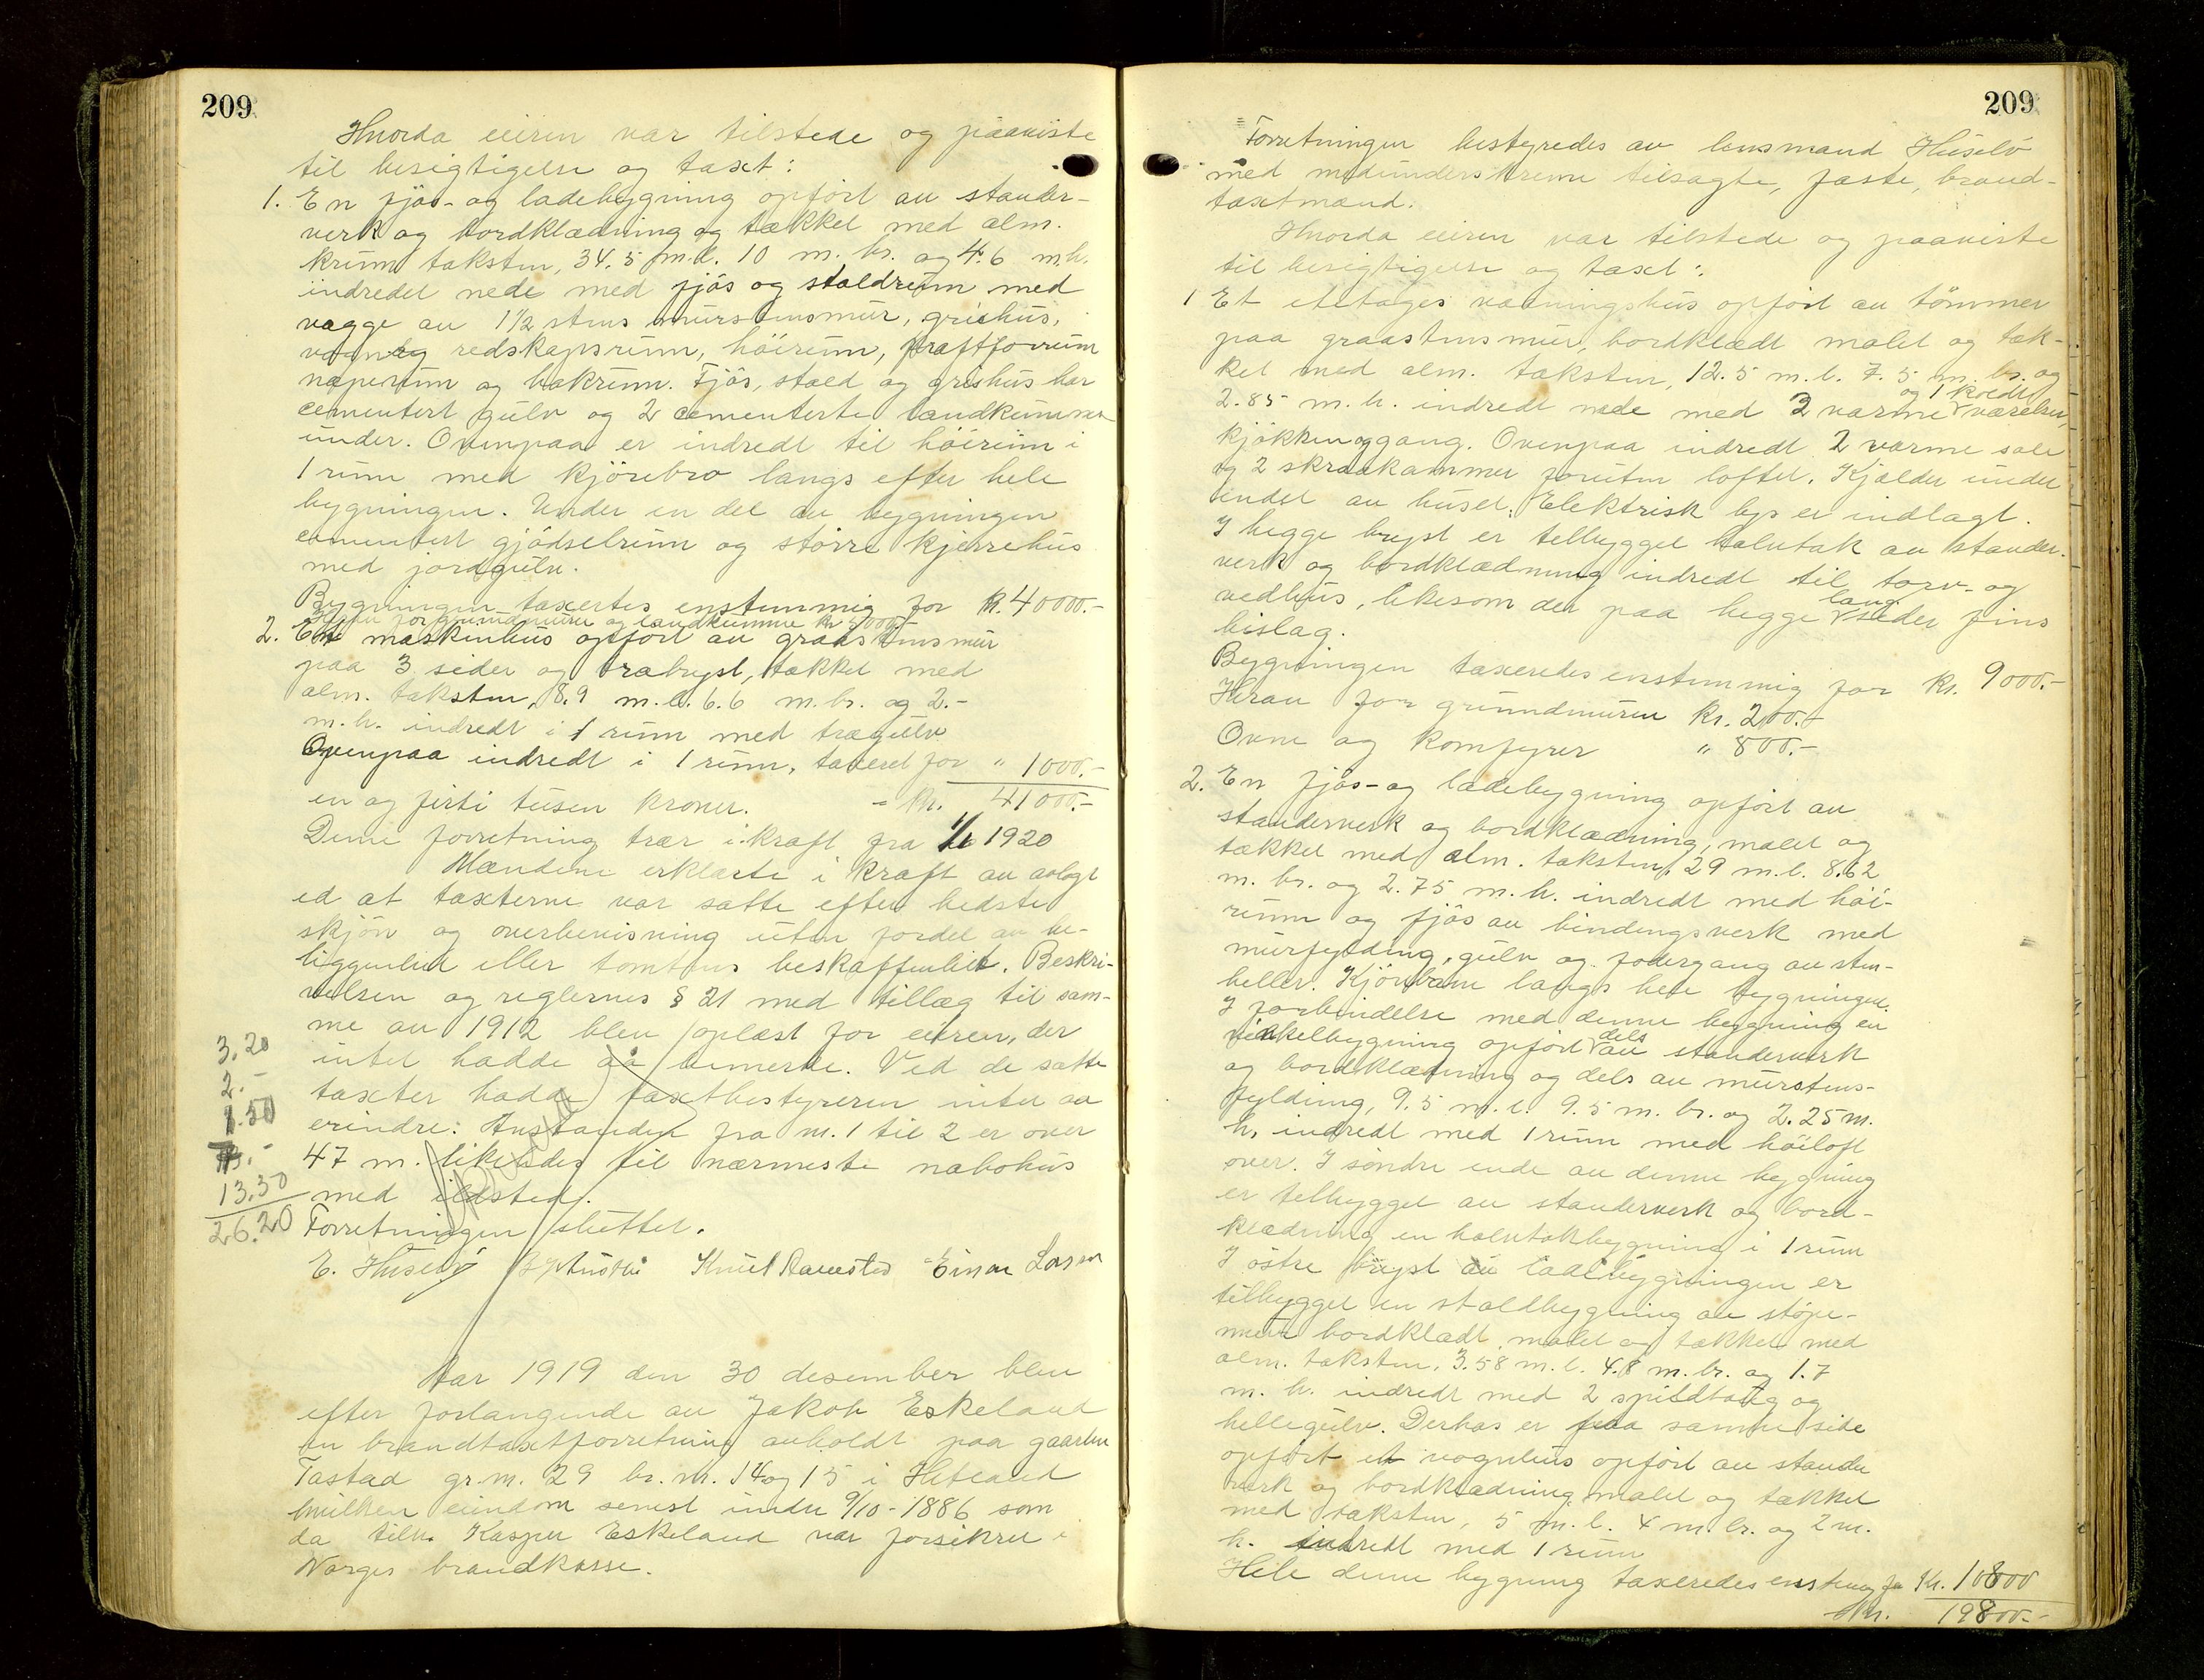 209
Hvorda eieren var tilstede og paaviste
til besigtigelse og taxt:
1. En fjös- og ladebygning opfört av stander-
verk og bordklædning og tækket med alm.
krum taksten, 34.5 m.l. 10 m. br. og 4.6 m.h.
indredet nede med fjös og staldrum med
vægge av 1½ stens murstensmur, grisehus,
vogn og redskapsrum, höirum, kraftforrum
næperum og bakrum. Fjös, stald og grishus har
cementert gulv og 2 cementerte landkummer
under. Ovenpaa er indredt til höirum i
1 rum med kjörebro langs efter hele
bygningen. Under en del av bygningen
cementert gjödselrum og större kjerrehus
med jordgulv.
Bygningen taxertes enstemmig for kr. 40000.-
Herav for grundmuren og landkumme kr 5000.-
2. Et maskinhus opfört av graastensmur
paa 3 sider og træbryst, tækket med
alm. taksten, 8.9 m.l. 6.6 m.br. og 2.-
m.h. indredt i 1 rum med trægulv
Ovenpaa indredt i 1 rum, taxeret for " 1000.-
en og firti tusen kroner. - kr. 41000.-
Denne forretning trær i kraft fra 1/1 1920
Mændene erklærte i kraft av avlagt
ed at taxterne var satte efter bedste
skjön og overbevisning uten fordel av be-
liggenhet eller tomtens beskaffenhet. Beskri-
velsen og reglernes § 21 med tillæg til sam-
me av 1912 blev oplæst for eieren, der
intet hadde aa bemerke. Ved de satte
taxter hadde taxtbestyreren intet aa
erindre: Avstanden fra nr. 1 til 2 er over
47 m. likeledes til nærmeste nabohus
med ildsted.
Forretningen sluttet.
3.20
2.-
1.50
13.30
26.20
E. Husebö Knut Ramstad Einar Larsen
Aar 1919 den 30 desember blev
efter forlangende av Jakob Eskeland
en brandtaxtforretning avholdt paa gaarden
Tastad gr.nr. 29 br.nr. 14 og 15 i Hetland
hvilken eiendom senest under 9/10-1886 som
da tilh. Kasper Eskeland var forsikret i
Norges brandkasse.
209
Forretningen bestyredes av lensmand Husebö
med medunderskrevne tilsagte, faste, brand-
taxtmænd.
Hvorda eieren var tilstede og paaviste
til besigtigelse og taxt:
1 Et etetages vaaningshus opfört av tömmer
paa graastensmur, bordklædt malet og tæk-
ket med alm. taksten, 12.5 m.l. 7.5 m. br. og
og 1 koldt
2.85 m.h. indredt nede med 2 varme værelser,
kjökken og gang. Ovenpaa indredt 2 varme sale
og 2 skraakammer foruten loftet. Kjælder under
endel av huset. Elektrisk lys er indlagt.
I begge bryst er tilbygget halvtak av stander-
verk og bordklædning indredt til torv- og
lang
vedhus, likesom der paa begge sider fins
bislag.
Bygningen taxeredes enstemmig for kr. 9000.-
Herav for grundmuren kr. 200.-
Ovne og komfyrer " 800.-
2. En fjös- og ladebygning opfört av
standerverk og bordklædning, malet og
tækket med alm. taksten, 29 m.l. 8.62
m. br. og 2.75 m.h. indredt med höi-
rum og fjös av bindingsverk med
murfylding, gulv og fodergang av sten-
heller. Kjörebane langs hele bygningen.
I forbindelse med denne bygning en
dels
vinkelbygning opfört av standerverk
og bordklædning og dels av murstens-
fylding, 9.5 m.l. 9.5 m. br. og 2.25 m.
h. indredt med 1 rum med höiloft
over. I söndre ende av denne bygning
er tilbygget av standerverk og bord-
klædning en halvtakbygning i 1 rum
I östre bryst av ladebygningen er
tilbygget en staldbygning av stöpe-
mur bordklædt, malet og tækket med
alm. taksten, 3.58 m.l. 4.8 m. br. og 1.7
m. h. indredt med 2 spildtaug og
hellegulv. Derhos er paa samme side
opfört et vognhus opfört av stander
verk og bordklædning malet og tækket
med taksten, 5 m.l. 4 m. br. og 2 m.
h. indredt med 1 rum
Hele denne bygning taxeredes enstemmig for Kr. 10800
Kr. 19800.-